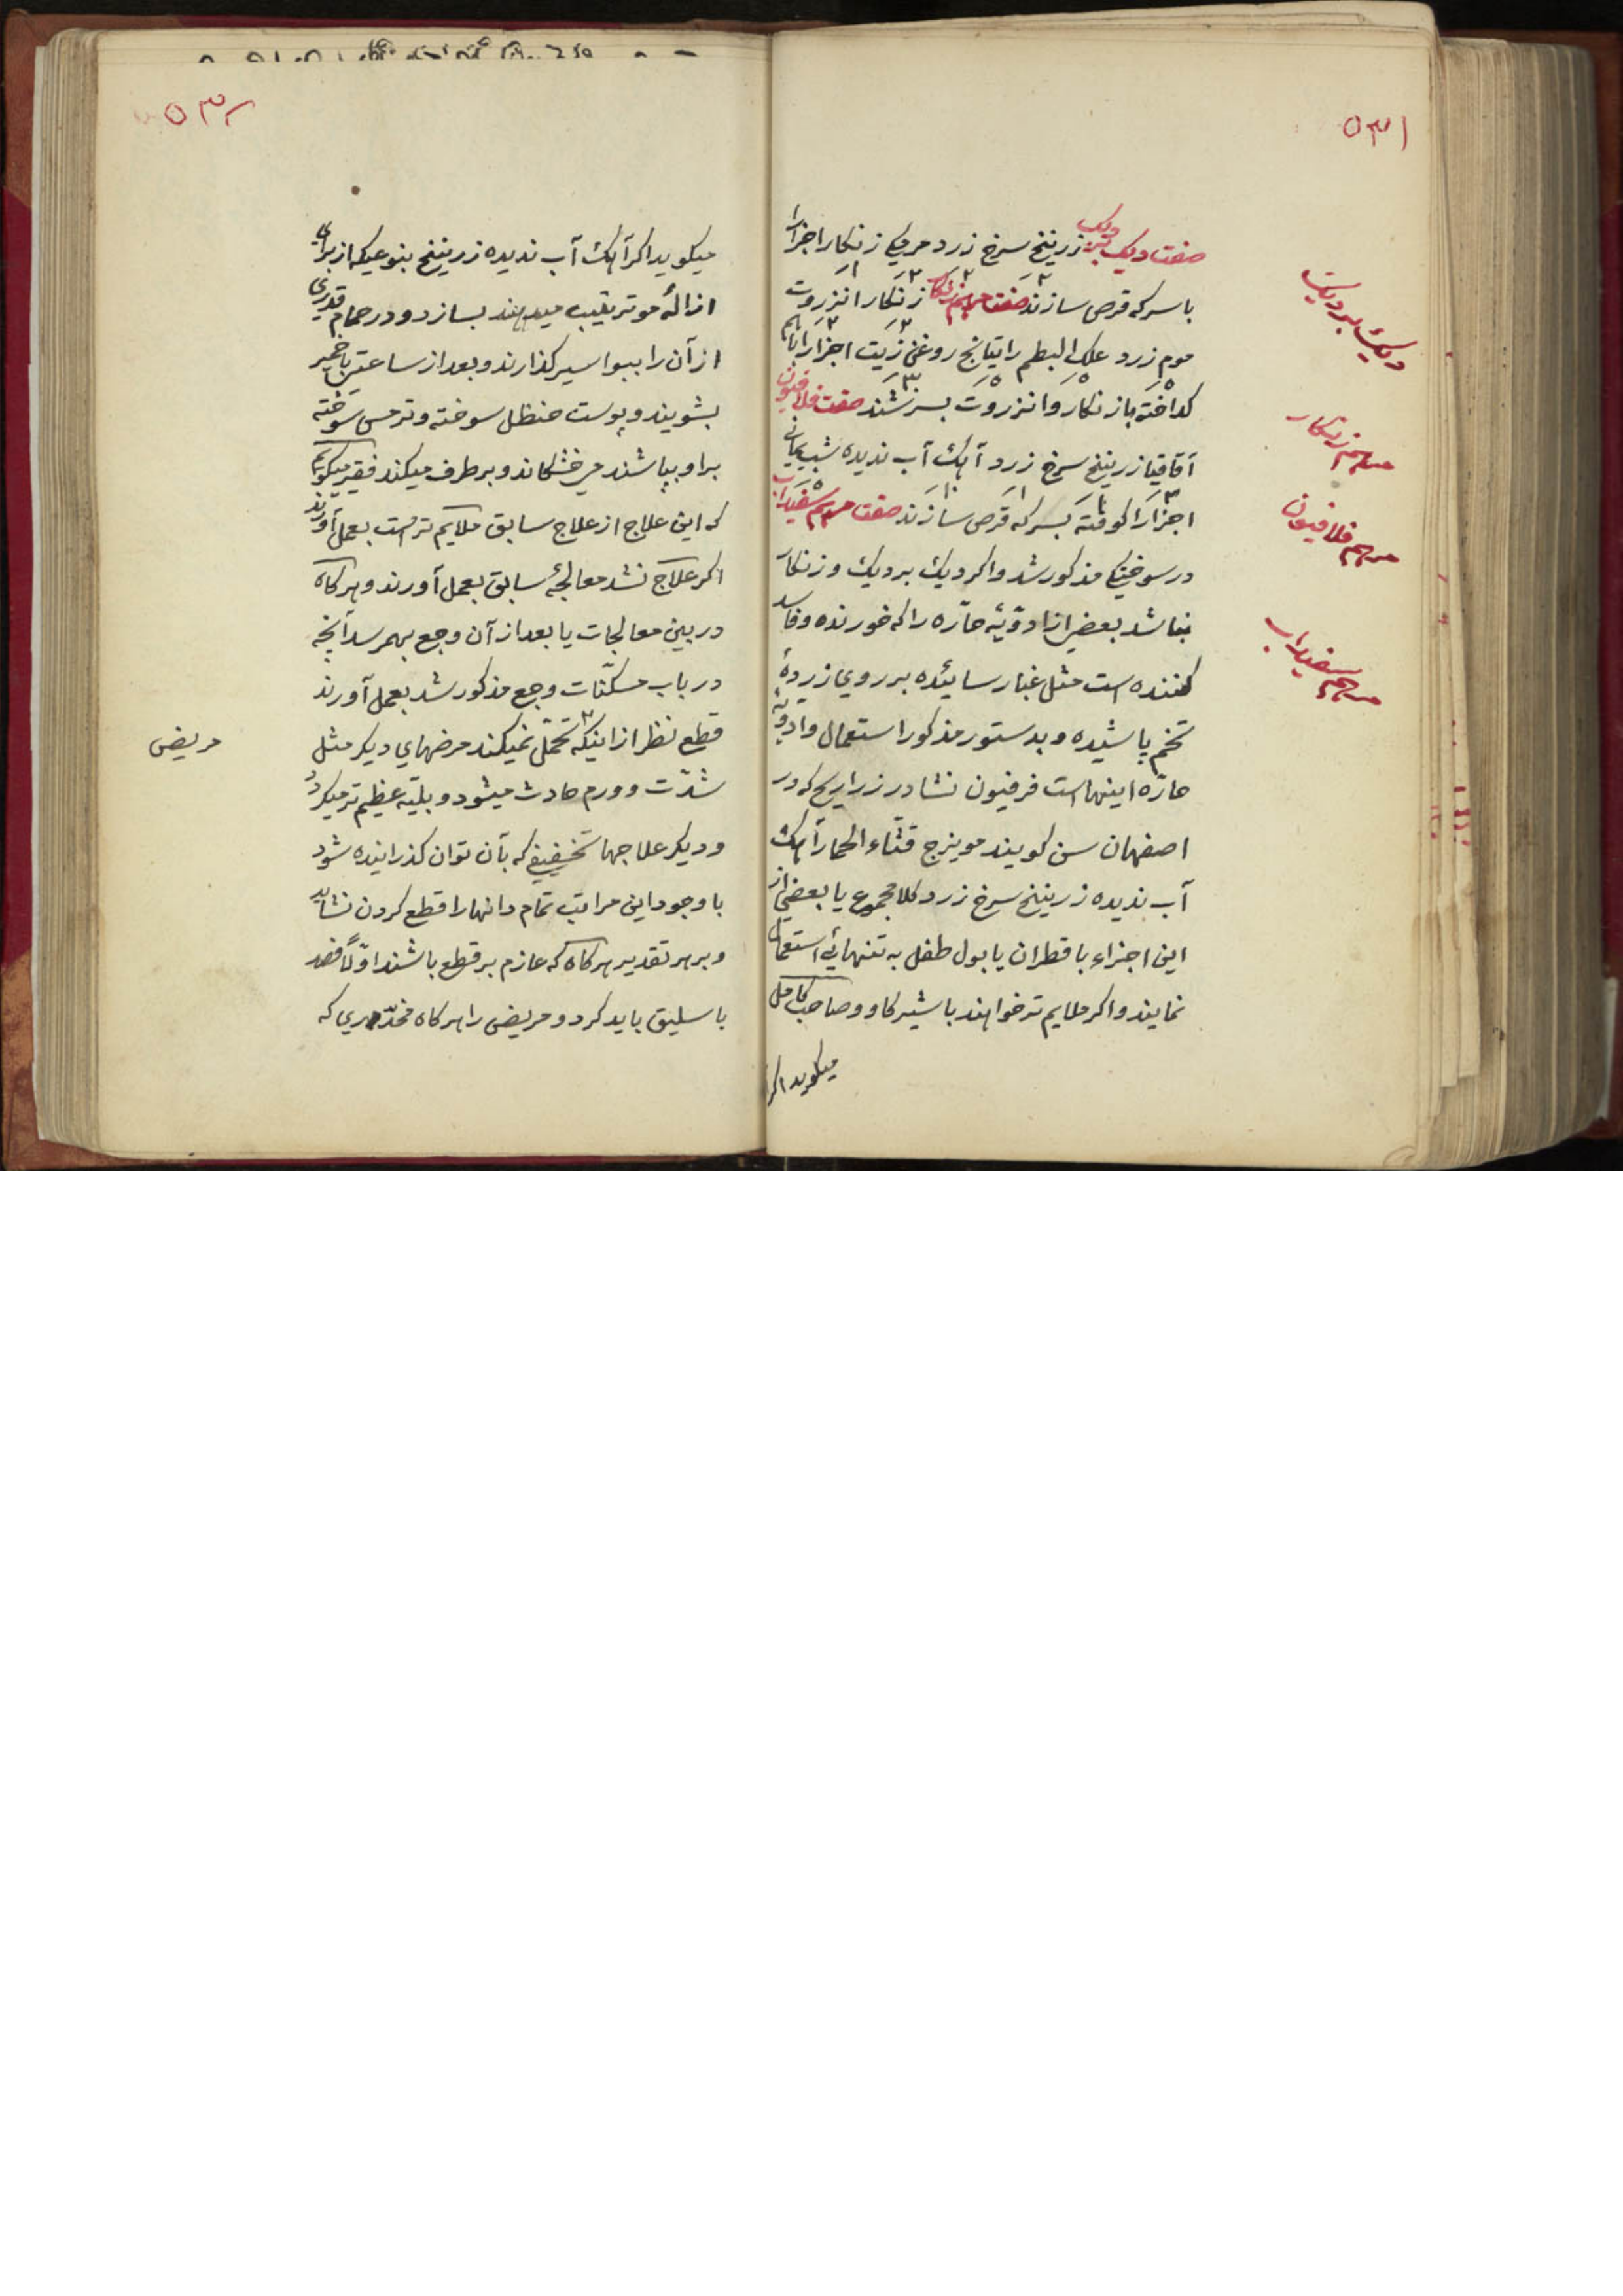 ۵۳۱
صفت دیک بر دیک زرینخ سرخ زرد هریک زنکار اجزا را
با سرکه قرص سازند صفت مرهم زنکار زنکار انزروت
موم زرد علک البطم راتیانج روغن زیت اجزا را باهم
کداخته بازنکار و انزروت بسرشند صفت فلافیون
آقاقیا زرینخ سرخ زرد آهک آب ندیده شب یمانی
اجزا را کوفته بسرکه قرص سازند صفت مرهم سفیداب
در سوختکی مذکور شد و اکر دیک بردیک و زنکار
نباشد بعضی از ادویٔه حاره را که خورنده و فاسد
کننده است مثل غبار سائیده بر روی زردهٔ
تخم پاشیده و بدستور مذکور استعمال و ادویه
حاره اینهاست فرفیون نشادر زراریح که در
اصفهان سن کویند مویزج قثاء الحمار آهک
آب ندیده زرینخ سرخ زرد کلا مجموع یا بعضی از
این اجزاء با قطران یا بول طفل به تنهائی استعمال
نمایند و اکر ملایم تر خواهند با شیر کاو و صاحب کامل
میکوید اکر
دیک بر دیک
مرهم زنکار
مرهم فلافیون
مرهم سفیداب
۵۳۲
میکوید اکر آهک آب ندیده زرینخ بنوعیکه از برای
ازالهٔ مو ترتیب میدهند بسازد و در حمام قدری
از آن را ببواسیر کذارند و بعد از ساعتی با خمیر
بشویند و پوست حنظل سوخته و ترمس سوخته
براو بپاشند می خشکاند و برطرف میکند فقیر میکویم
که این علاج از علاج سابق ملایم تر است بعمل آورند
اکر علاج نشد معالجهٔ سابق بعمل آورند و هرکاه
در بین معالجات یا بعد از آن وجع بهمرسد آنچه
در باب مسکنات وجع مذکور شد بعمل آورند
قطع نظر از اینکه تحمل نمیکند مرضهای دیکر مثل
شدت و ورم حادث میشود و بلیه عظیم تر میکردد
و دیکر علاجها تخفیفی که بآن توان کذرانیده شود
با وجود این مراتب تمام دانها را قطع کردن نشاید
و بر هر تقدیر هرکاه که عازم بر قطع باشند اولا فصد
باسلیق باید کرد و مریض را هرکاه مخدری که
مریض